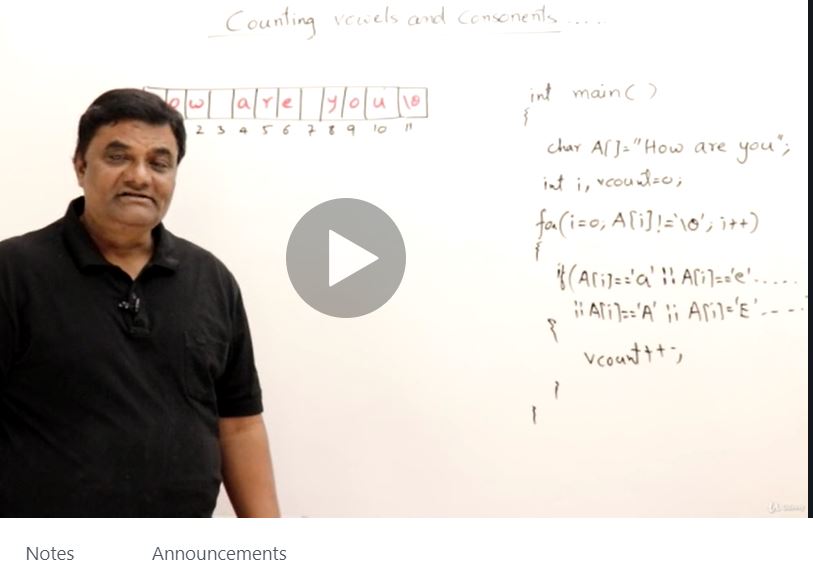 Counting vowels and consonents.....
o w a r e y o u \0
2 3 4 5 6 7 8 9 10 11
int main( )
{
char A[]="How are you";
int i, vcount=0;
for(i=0; A[i]!='\0'; i++)
{
if(A[i]=='a' || A[i]=='e'.....
|| A[i]=='A' || A[i]='E'----
{
vcount++;
}
}
Udemy
Notes Announcements